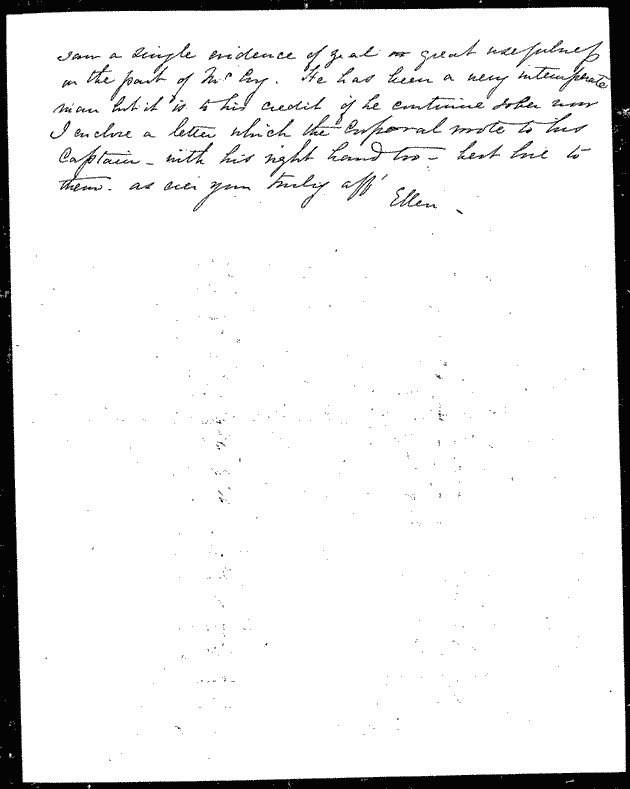 saw a single evidence of zeal or great usefulness
on the part of Mr Coy. He has been a very intemperate
man but it is to his credit if he continue sober now
I enclose a letter which the Corporal wrote to his
Captain - with his right hand too - best love to
them. as ever yours truly aff'
Ellen